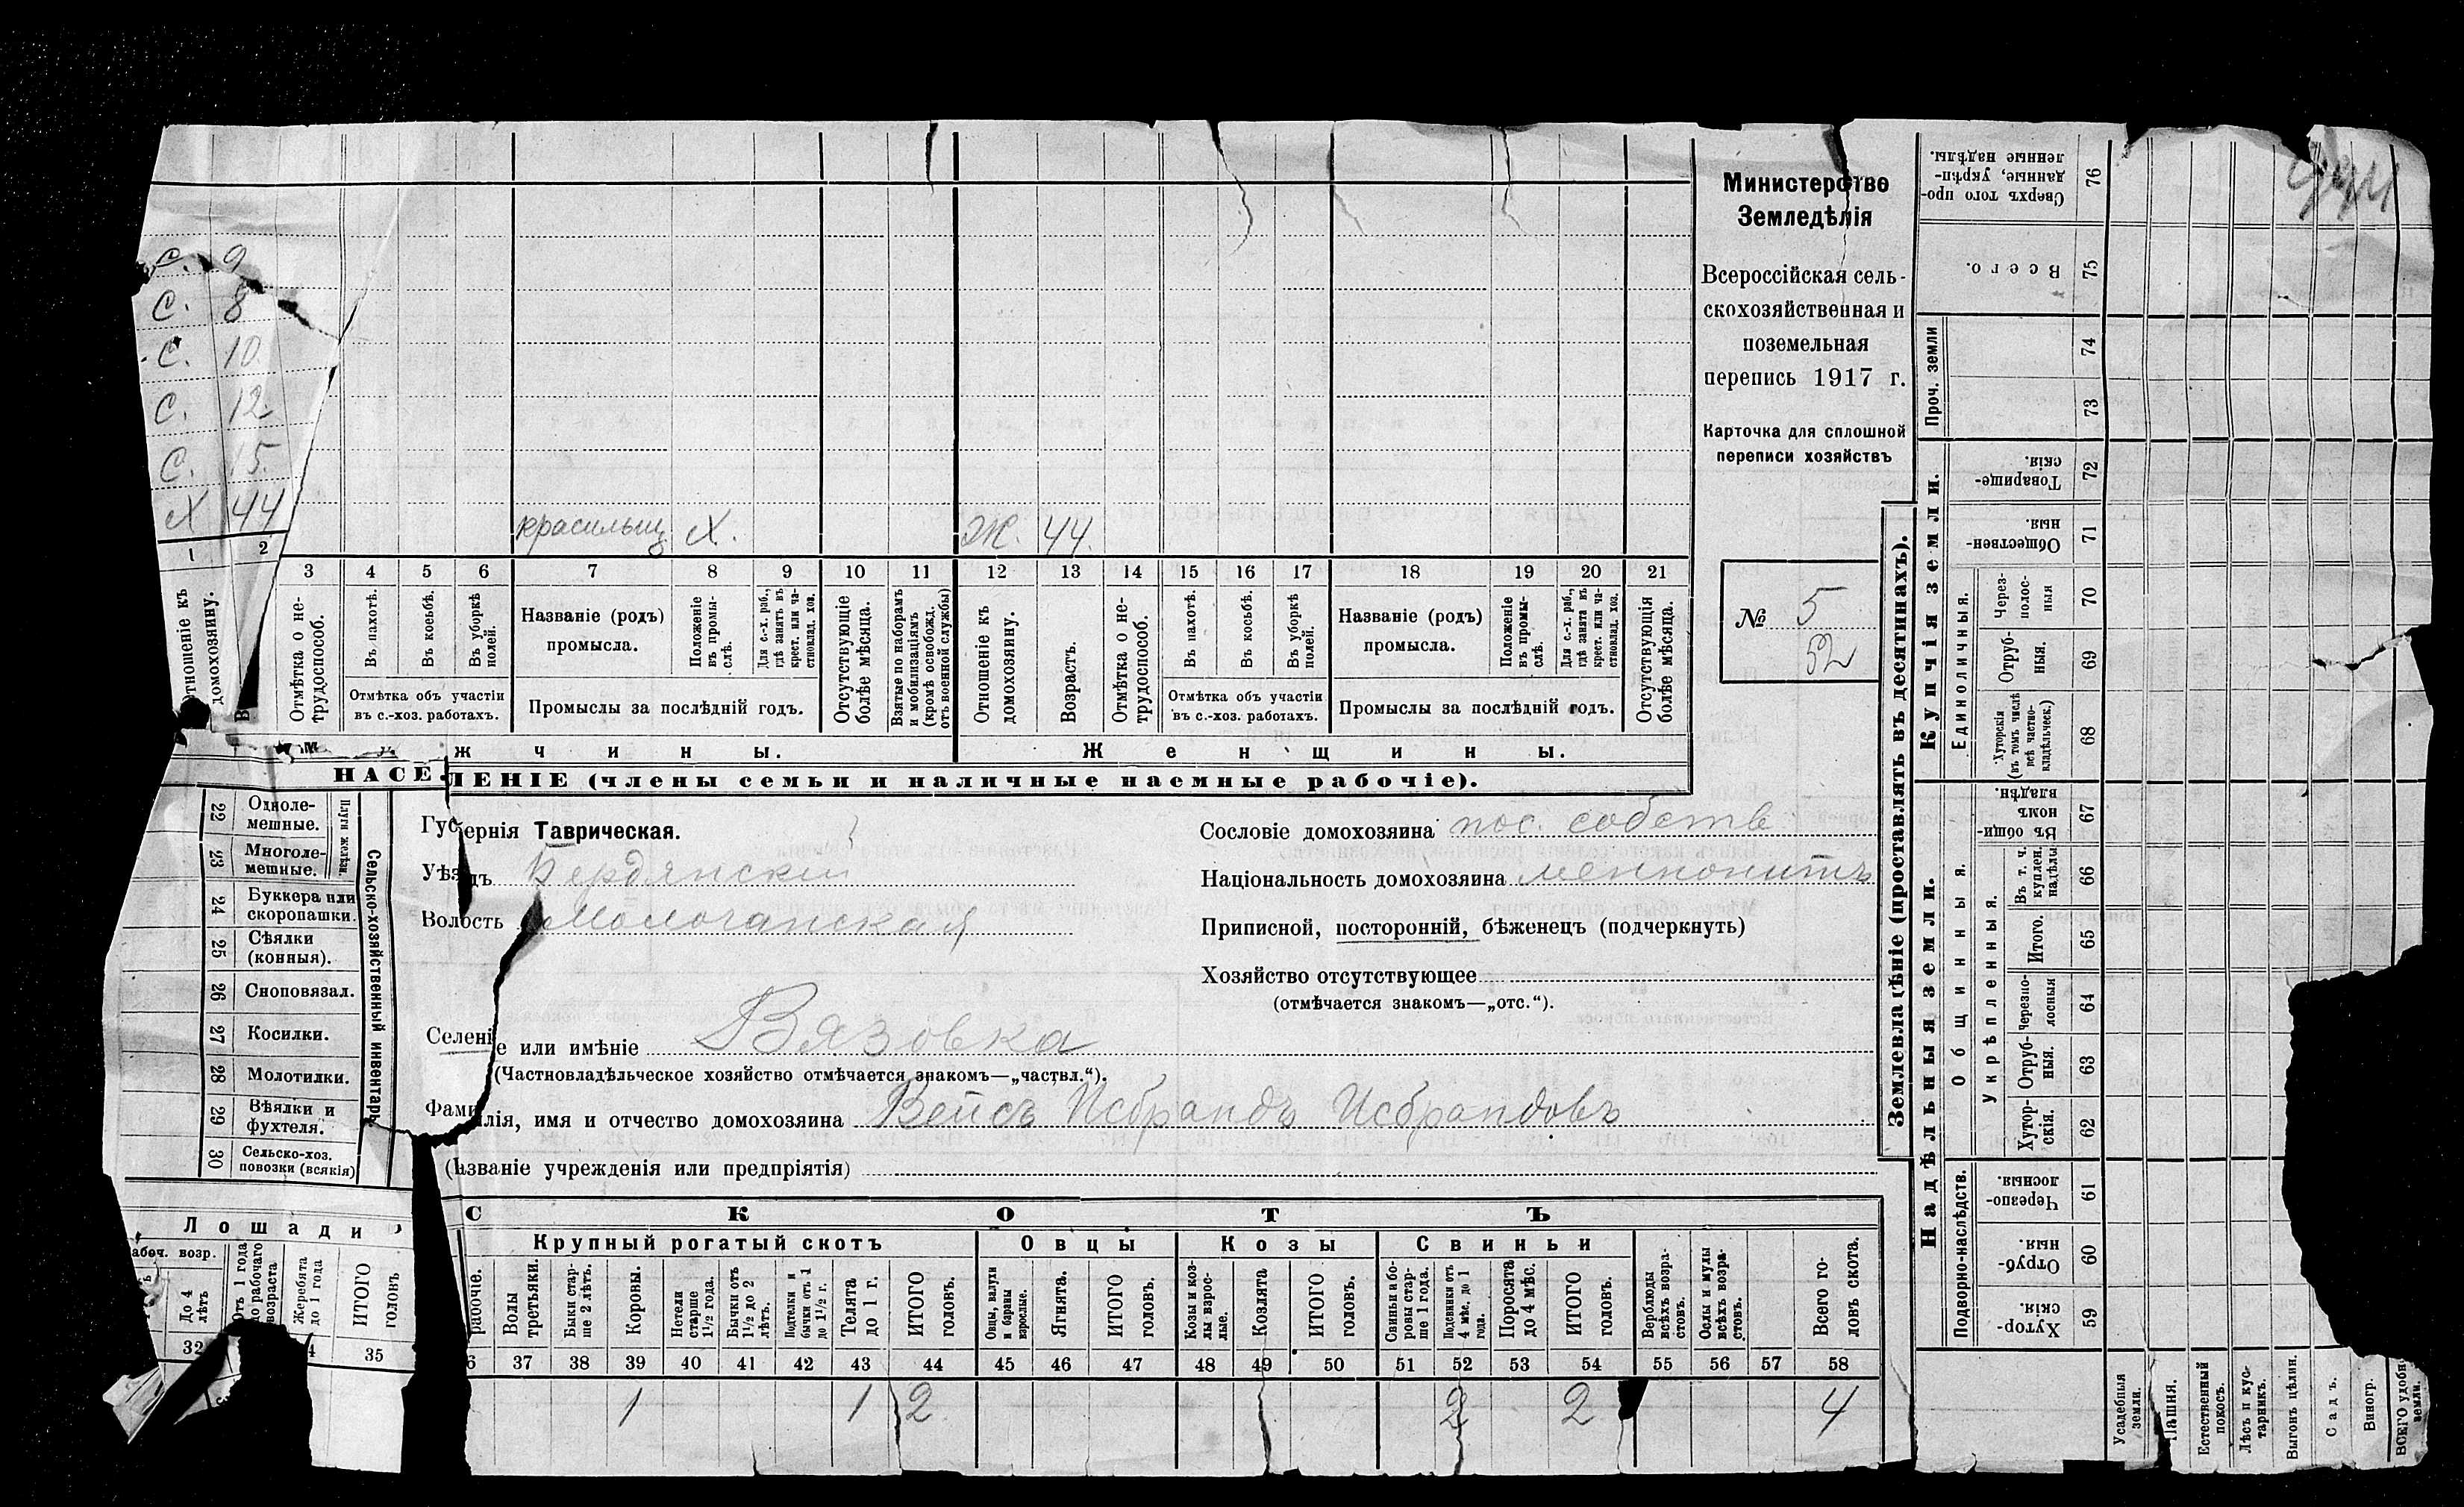 С. 9
С. 8
С. 10
С. 12
С. 15.
Х 44 красильщ. Х. Ж. 44.
1 2 3 4 5 6 7 8 9 10 11 12 13 14 15 16 17 18 19 20 21
Отношеніе къ домохозяину.
Отмѣтка о не-
трудоспособ.
Въ пахотѣ.
Въ косьбѣ.
Въ уборкѣ
полей.
Отмѣтка объ участіи
въ с.-хоз. работахъ.
Названіе (родъ)
промысла.
Положеніе
въ промы-
слѣ.
Для с.-х. раб.,
гдѣ занятъ въ
крест. или ча-
стновлад. хоз.
Промыслы за послѣдній годъ.
Отсутствующіе
болѣе мѣсяца.
Взятые по наборамъ
и мобилизаціямъ
(кромѣ освобожд.
отъ военной службы)
Отношеніе къ
домохозяину.
Возрастъ.
Отмѣтка о не-
трудоспособ.
Въ пахотѣ.
Въ косьбѣ.
Въ уборкѣ
полей.
Отмѣтка объ участіи
въ с.-хоз. работахъ.
Названіе (родъ)
промысла.
Положеніе
въ промы-
слѣ.
Для с.-х. раб.,
гдѣ занята въ
крест. или ча-
стновлад. хоз.
Промыслы за послѣдній годъ.
Отсутствующія
болѣе мѣсяца.
жчины.
Женщины.
НАСЕЛЕНІЕ (члены семьи и наличные наемные рабочіе).
Министерство
Земледѣлія
Всероссійская сель-
скохозяйственная и
поземельная
перепись 1917 г.
Карточка для сплошной
переписи хозяйствъ
№ 5
52
22 Одноле-
мешные.
23 Многоле-
мешные.
Плуги желѣзн.
24 Буккера или
скоропашки.
25 Сѣялки
(конныя).
26 Сноповязал.
27 Косилки.
28 Молотилки.
29 Вѣялки и
фухтеля.
30 Сельско-хоз.
повозки (всякія)
Сельско-хозяйственный инвентарь
Губернія Таврическая.
Уѣздъ Бердянскій
Волость Молочанская
Сословіе домохозяина пос. собств
Національность домохозяина меннонитъ
Приписной, посторонній, бѣженецъ (подчеркнуть)
Хозяйство отсутствующее
(отмѣчается знакомъ—„отс.“).
Селеніе или имѣніе Вязовка
(Частновладѣльческое хозяйство отмѣчается знакомъ—„частвл.“).
Фамилія, имя и отчество домохозяина Вейсъ Исбрандъ Исбрандовъ
(Названіе учрежденія или предпріятія)
СКОТЪ
Лошади
абоч. возр.
До 4
лѣтъ
Отъ 1 года
до рабочаго
возраста
Жеребята
до 1 года
ИТОГО
головъ
32 35
Крупный рогатый скотъ
рабочіе.
Волы
третьяки.
Быки стар-
ше 2 лѣтъ.
Коровы.
Нетели
старше
1½ года.
Бычки отъ
1½ до 2
лѣтъ.
Подтелки и
бычки отъ 1
до 1½ г.
Телята
до 1 г.
ИТОГО
головъ.
Овцы
Овцы, валухи
и бараны
взрослые.
Ягнята.
ИТОГО
головъ.
Козы
Козы и коз-
лы взрос-
лые.
Козлята
ИТОГО
головъ.
Свиньи
Свиньи и бо-
ровы стар-
ше 1 года.
Подсвинки отъ
4 мѣс. до 1
года.
Поросята
до 4 мѣс.
ИТОГО
головъ.
Верблюды
всѣхъ возра-
стовъ.
Ослы и мулы
всѣхъ возра-
стовъ.
Всего го-
ловъ скота.
6 37 38 39 40 41 42 43 44 45 46 47 48 49 50 51 52 53 54 55 56 57 58
1 1 2 2 2 4
Землевладѣніе (проставлять въ десятинахъ).
Надѣльныя земли. Купчія земли.
Проч. земли
Сверхъ того про-
данные, укрѣп-
ленные надѣлы.
76
Всего.
75
74
73
Товарище-
скія.
72
Обществен-
ныя.
71
Единоличныя.
Через-
полос-
ныя
70
Отруб-
ныя.
69
Хуторскія
(въ томъ числѣ
всѣ частно-
владѣльческ.)
68
Общинныя.
Въ общин-
номъ
владѣн.
67
Укрѣпленныя.
Въ т. ч.
куплен.
надѣлы
66
Итого.
65
Черезпо-
лосныя
64
Отруб-
ныя.
63
Хутор-
скія.
62
Подворно-наслѣдств.
Черезпо-
лосныя.
61
Отруб-
ныя.
60
Хутор-
скія.
59
Усадебныя
земли.
Пашня.
Естественный
покосъ.
Лѣсъ и кус-
тарникъ.
Выгонъ цѣлин.
Садъ.
Виногр.
ВСЕГО удобн.
земли.